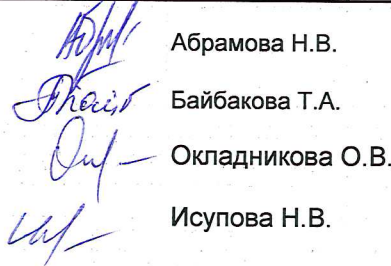 Абрамова Н.В.
Байбакова Т.А.
Окладникова О.В.
Исупова Н.В.